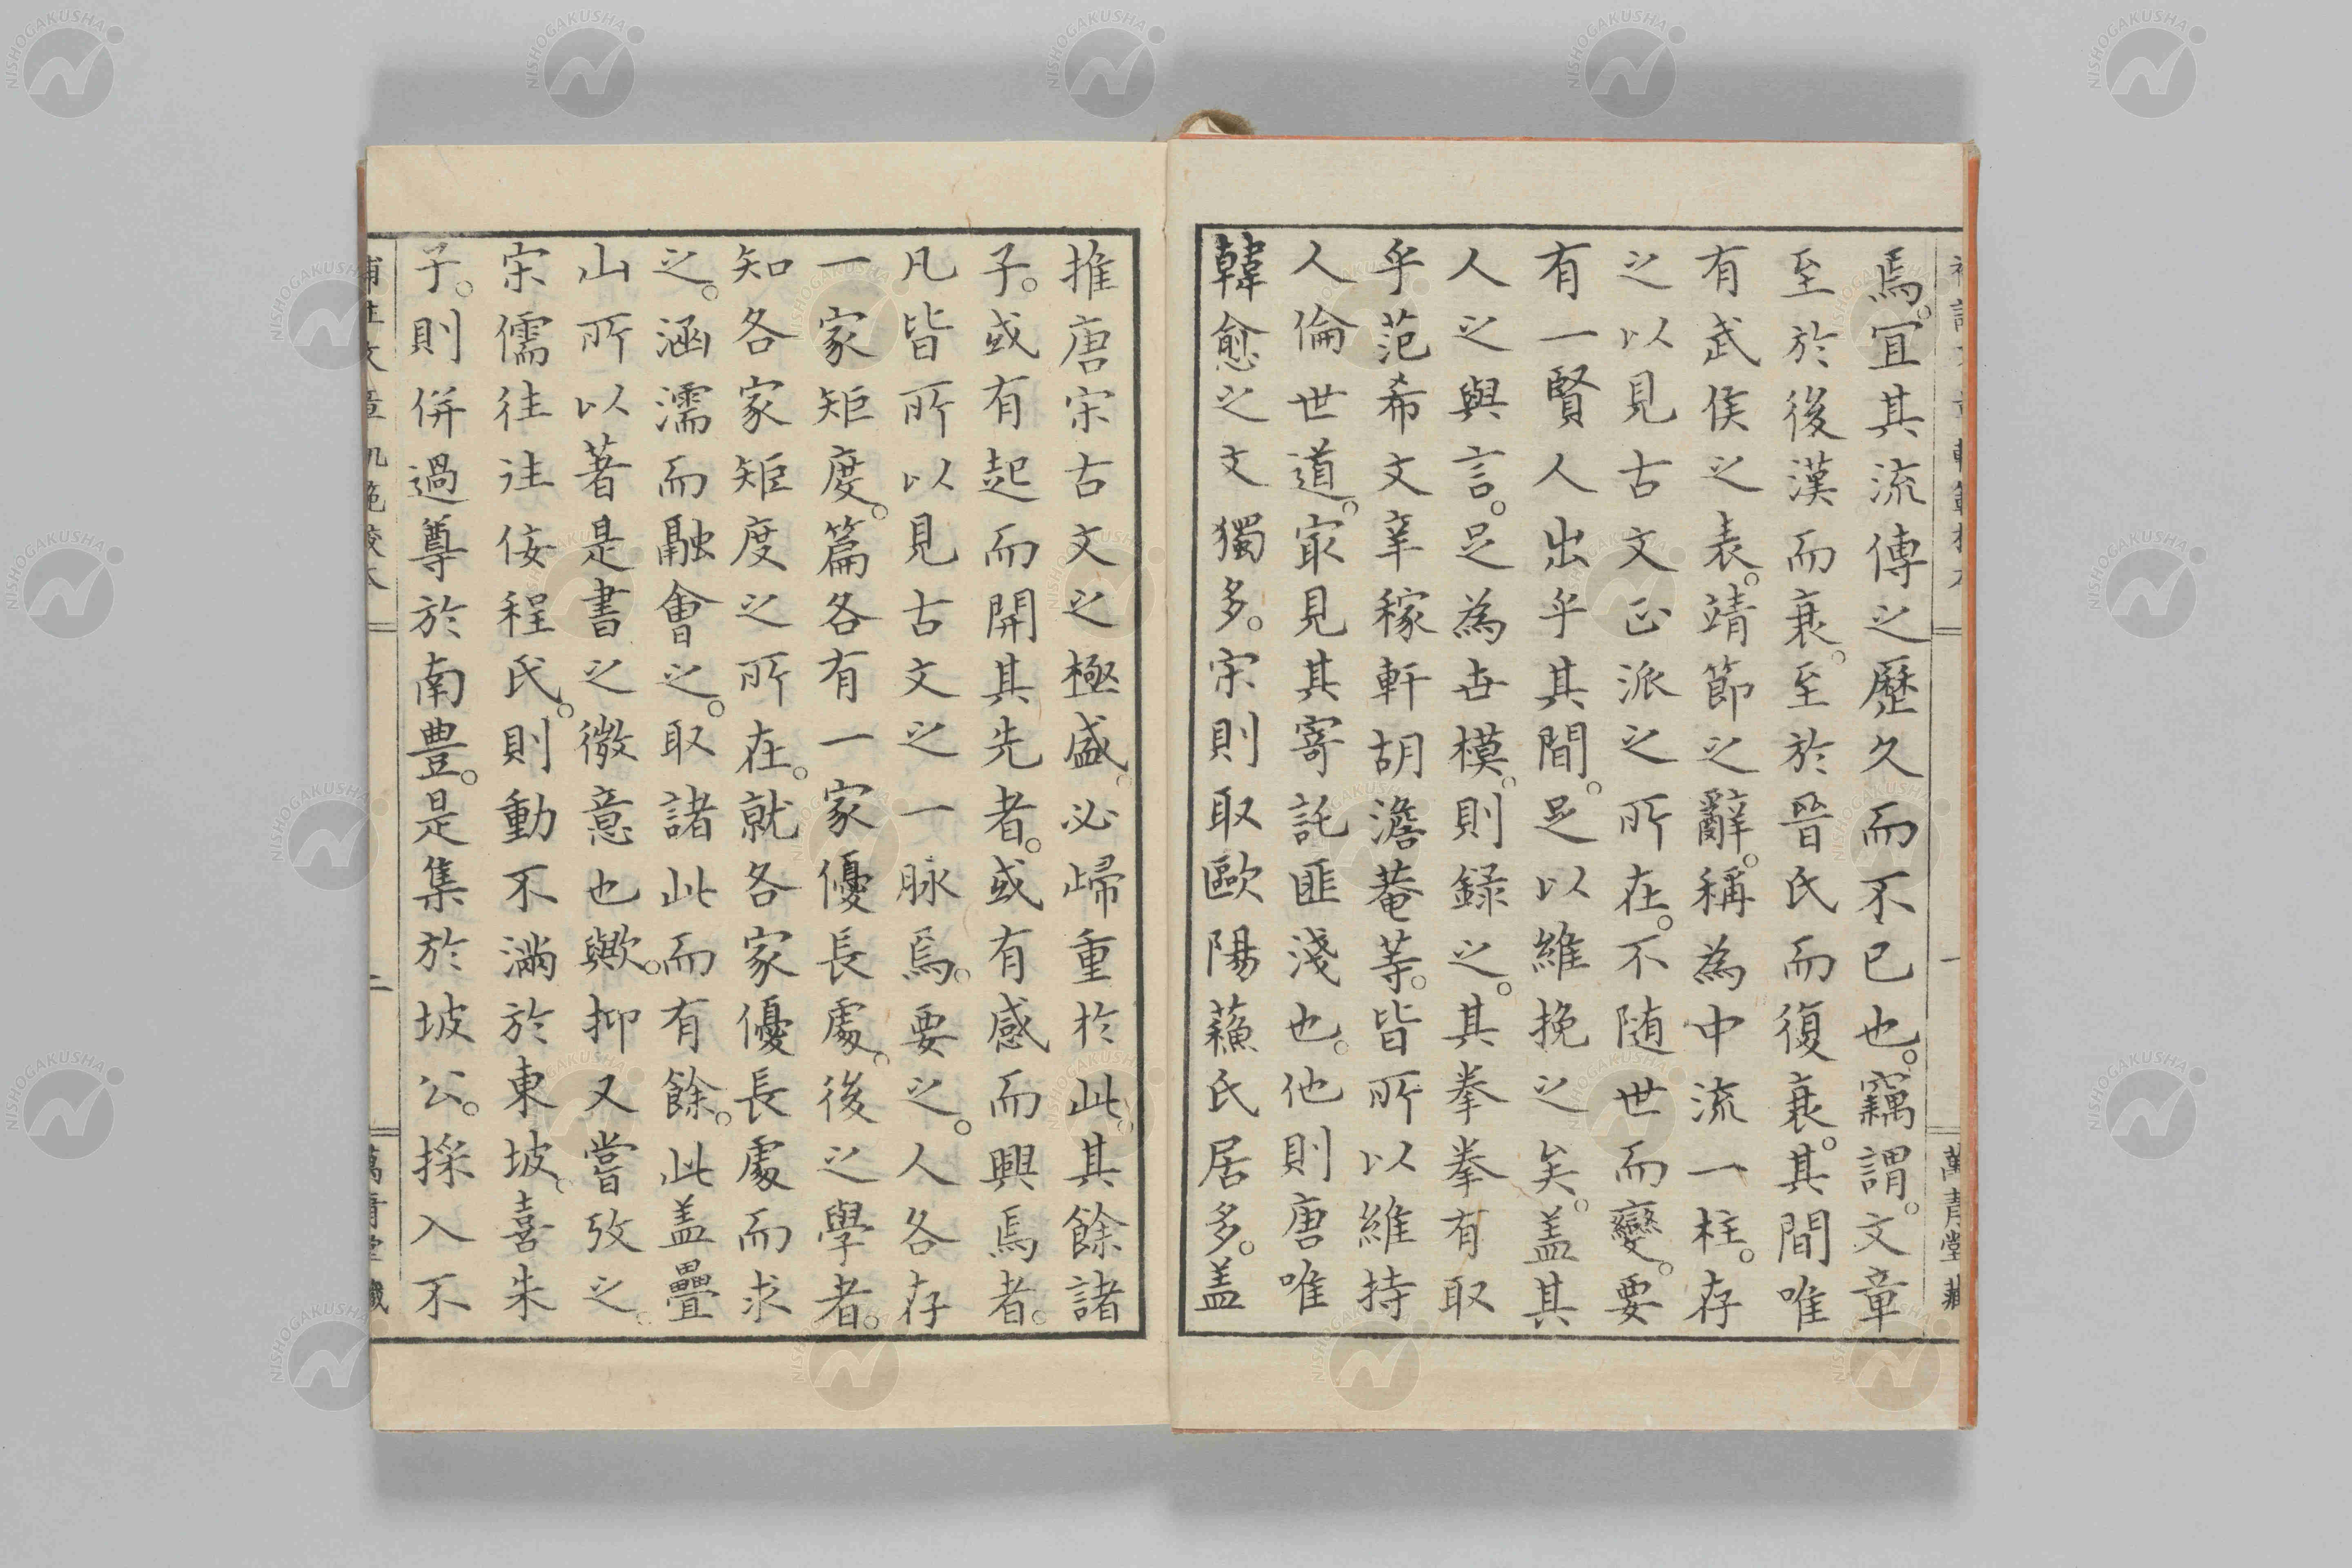 焉。宜其流傳之歷久而不已也。竊謂。文章
至於後漢而衰。至於晉氏而復衰。其間唯
有武侯之表。靖節之辭。稱為中流一柱。存
之以見古文正派之所在。不随世而變。要
有一賢人出乎其間。足以維挽之矣。盖其
人之與言。足為世模。則録之。其拳拳有取
乎范希文辛稼軒胡澹菴等。皆所以維持
人倫世道。㝡見其寄託匪淺也。他則唐唯
韓愈之文獨多。宋則取歐陽蘓氏居多。盖
推唐宋古文之極盛。必歸重於此。其餘諸
子。或有起而開其先者。或有感而興焉者。
凡皆所以見古文之一脉焉。要之。人各存
一家矩度。篇各有一家優長處。後之學者。
知各家矩度之所在。就各家優長處而求
之。涵濡而融會之。取諸此而有餘。此盖疊
山所以著是書之微意也歟。抑又嘗攷之。
宋儒往往佞程氏。則動不滿於東坡。喜朱
子。則併過尊於南豊。是集於坡公。採入不
萬青堂藏
二
NISHOGAKUSHA